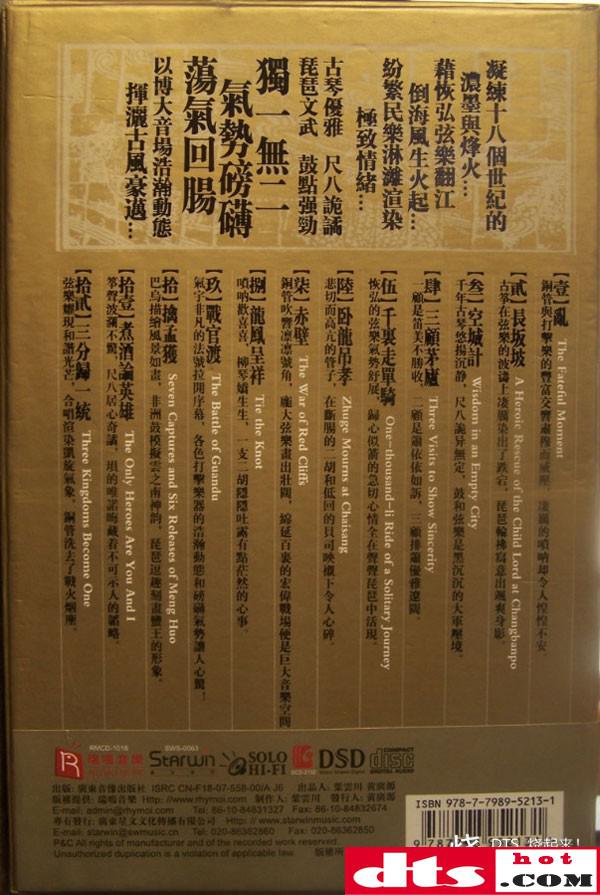 凝練十八個世紀的
濃墨與烽火…
藉恢弘弦樂翻江
倒海風生火起…
紛繁民樂淋灕渲染
極致情緒…
古琴優雅 尺八詭譎
琵琶文武 鼓點强勁
獨一無二
氣勢磅礴
蕩氣回腸
以博大音場浩瀚動態
揮灑古風豪邁…
【壹】亂 The Fateful Moment
銅管與打擊樂的豐富交響肅穆而威壓，凄厲的嗩呐却令人惶惶不安。
【貳】長坂坡 A Heroic Rescue of the Child Lord at Changbanpo
古筝在弦樂的波濤上凄厲染出了跌宕，琵琶輪拂寫意出颯爽身影。
【叁】空城計 Wisdom in an Empty City
千年古琴悠揚沉静，尺八詭异無定，鼓和弦樂是黑沉沉的大軍壓境。
【肆】三顧茅廬 Three Visits to Show Sincerity
一顧是笛美不勝收，二顧是簫依依如訴，三顧排簫優雅遼闊。
【伍】千裏走單騎 One-thousand-li Ride of a Solitary Journey
恢弘的弦樂氣勢舒展，歸心似箭的急切心情全在聲聲琵琶中活現。
【陸】卧龍吊孝 Zhuge Mourns at Chaisang
悲切而高亢的管子，在斷腸的二胡和低回的貝司映襯下令人心碎。
【柒】赤壁 The War of Red Cliffs
銅管吹響凛凛號角，龐大弦樂畫出壯闊，綿延百裏的宏偉戰場便是巨大音樂空間
【捌】龍鳳呈祥 Tie the Knot
嗩呐歡喜喜，柳琴嬌生生，一支二胡隱隱吐露有點茫然的心事。
【玖】戰官渡 The Battle of Guandu
氣宇非凡的法號拉開序幕，各色打擊樂器的浩瀚動態和磅礴氣勢讓人心驚！
【拾】擒孟獲 Seven Captures and Six Releases of Meng Huo
巴烏描繪風景如畫，非洲鼓模擬雲之南神韵，琵琶逗趣刻畫蠻王的形象。
【拾壹】煮酒論英雄 The Only Heroes Are You And I
筝聲波瀾不驚，尺八居心奇譎，塤的唯諾晦藏着不可示人的韜略。
【拾貳】三分歸一統 Three Kingdoms Become One
弦樂耀現和諧光芒，合唱渲染凱旋氣象，銅管洗去了戰火烟塵。
RMCD-1018
瑞鳴音樂
SWS-0063
STARWIN
SOLO
HI-FI
DSD
COMPACT
disc
DIGITAL AUDIO
出版: 廣東音像出版社 ISRC CN-F18-07-558-00/A.J6 出品人: 葉雲川 黄廣郎
版權提供: 瑞鳴音樂 Http: //www.rhymoi.com 制作人: 葉雲川 發行人: 黄廣郎
E-mail: admin@rhymoi.com Tel: 86-10-84831327 Fax: 86-10-84832674
專有發行: 廣東星文文化傳播有限公司 Http: // www.starwinmusic.com
E-mail: starwin@swmusic.cn Tel: 020-86362860 Fax: 020-86362850
P&C All rights of manufacturer and of the recorded work reserved.
Unauthorized duplication is a violation of applicable law. 版權所
ISBN 978-7-7989-5213-1
DTS 烧起来!
dts
hot
.com